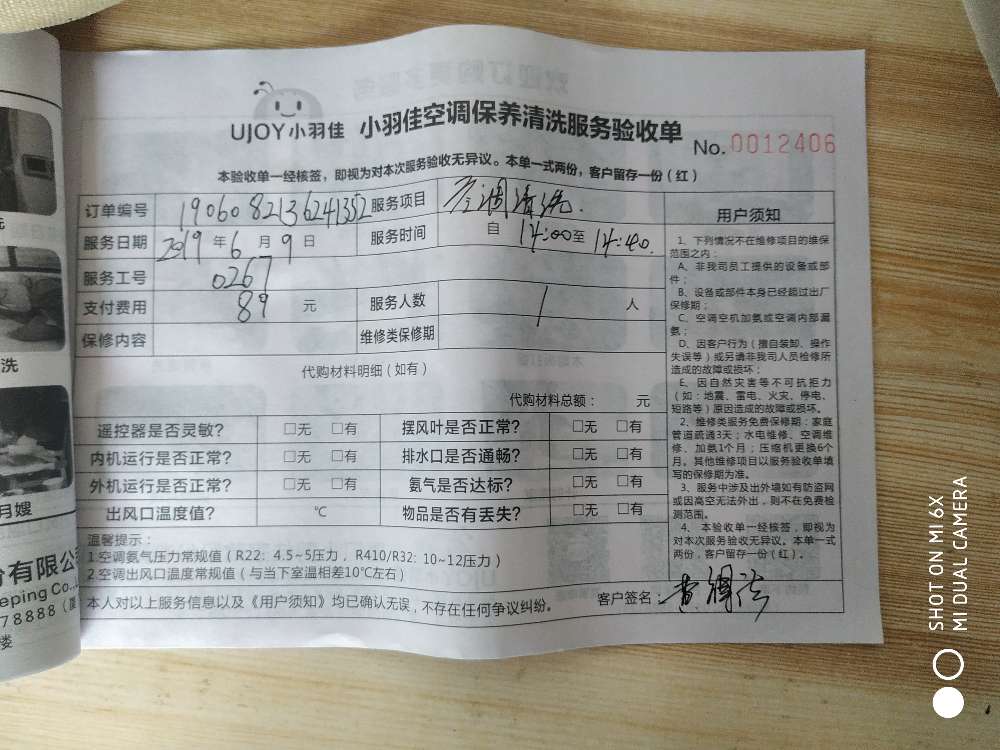 UJOY小羽佳 小羽佳空调保养清洗服务验收单 No.0012406
本验收单一经核签，即视为对本次服务验收无异议。本单一式两份，客户留存一份（红）
订单编号 1906082136241352 服务项目 空调清洗.
服务日期 2019 年 6 月 9 日 服务时间 自 14:00 至 14:40.
服务工号 0267
支付费用 89 元 服务人数 1 人
保修内容 维修类保修期
代购材料明细（如有）
代购材料总额： 元
遥控器是否灵敏？ □无 □有 摆风叶是否正常？ □无 □有
内机运行是否正常？ □无 □有 排水口是否通畅？ □无 □有
外机运行是否正常？ □无 □有 氨气是否达标？ □无 □有
出风口温度值？ ℃ 物品是否有丢失？ □无 □有
温馨提示：
1.空调氨气压力常规值（R22：4.5~5压力，R410/R32：10~12压力）
2.空调出风口温度常规值（与当下室温相差10℃左右）
本人对以上服务信息以及《用户须知》均已确认无误，不存在任何争议纠纷。 客户签名：
用户须知
1、下列情况不在维修项目的维保
范围之内：
A、非我司员工提供的设备或部
件；
B、设备或部件本身已经超过出厂
保修期；
C、空调空机加氨或空调内部漏
氨；
D、因客户行为（擅自装卸、操作
失误等）或另请非我司人员检修所
造成的故障或损坏；
E、因自然灾害等不可抗拒力
（如：地震、雷电、火灾、停电、
短路等）原因造成的故障或损坏。
2、维修类服务免费保修期：家庭
管道疏通3天；水电维修、空调维
修、加氨1个月；压缩机更换6个
月。其他维修项目以服务验收单填
写的保修期为准。
3、服务中涉及出外墙如有防盗网
或因高空无法外出，则不在免费检
测范围。
4、本验收单一经核签，即视为
对本次服务验收无异议。本单一式
两份，客户留存一份（红）。
洗
月嫂
份有限公
eping Co.,
78888（厦
楼
SHOT ON MI 6X
MI DUAL CAMERA